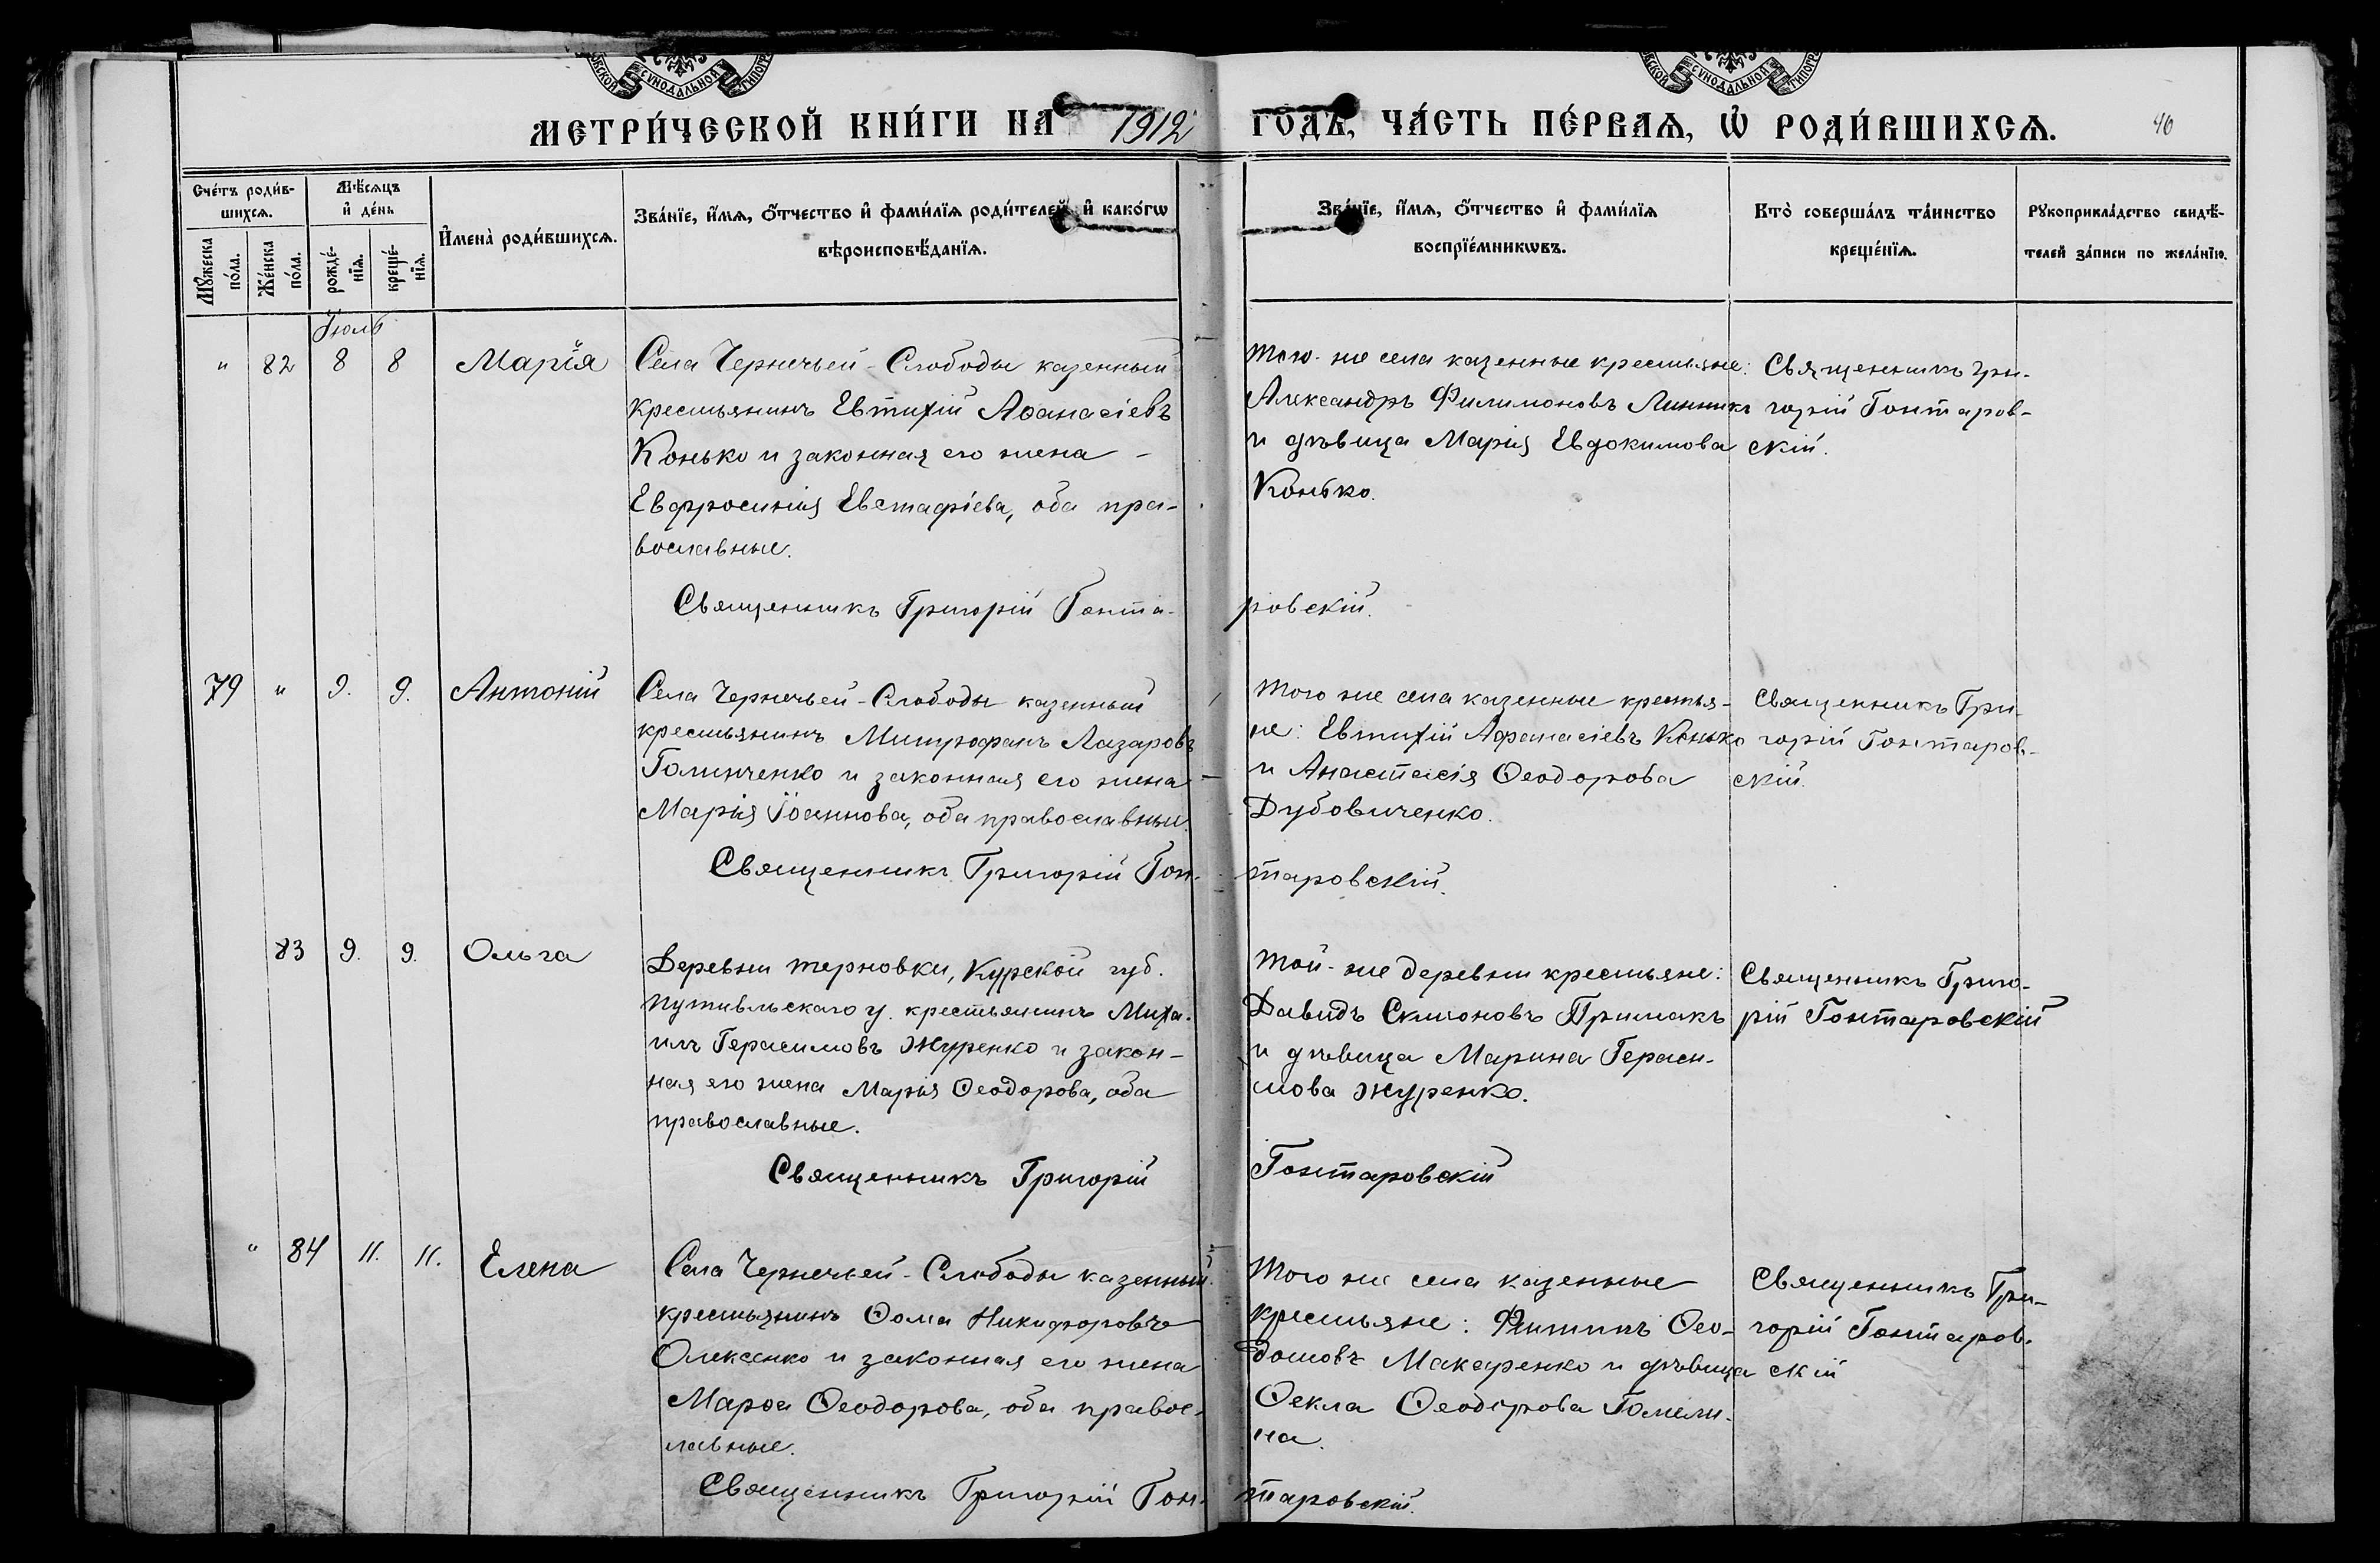 МЕТРИ́ЧЕСКОЙ КНИ́ГИ НА 1912 ГО́ДЪ, ЧА́СТЬ ПЕ́РВАѦ, Ѽ РОДИ́ВШИХСѦ. 46
Сче́тъ роди́в-
шихсѧ.
Мꙋжеска по́ла.
Же́нска по́ла.
Мѣ́сѧцъ и де́нь
рожде́-
нїѧ.
креще́-
нїѧ.
И҆мена̀ роди́вшихсѧ.
Зва́нїе, и҆́мѧ, ѻ҆́тчество и҆ фами́лїѧ роди́телей, и҆ како́гѡ
вѣроисповѣ́данїѧ.
Зва́нїе, и҆́мѧ, ѻ҆́тчество и҆ фами́лїѧ
воспрїе́мникѡвъ.
Кто̀ соверша́лъ та́инство
креще́нїѧ.
Рꙋкоприкла́дство свидѣ́-
телей за́писи по жела́нїю.
Іюль
" 82 8 8 Марія
Села Чернечьей-Слободы казенный
крестьянинъ Евтихій Аѳанасіевъ
Конько и законная его жена -
Евфросинія Евстафіева, оба пра-
вославные.
Того-же села казенные крестьяне:
Александръ Филимоновъ Линникъ
и дѣвица Марія Евдокимова
Конько.
Священникъ Гри-
горій Гонтаров-
скій.
Священникъ Григорій Гонта-
ровскій.
79 " 9. 9. Антоній
Села Чернечьей-Слободы казенный
крестьянинъ Митрофанъ Лазаровъ
Голинченко и законная его жена
Марія Іоаннова, оба православные.
Того же села казенные крестья-
не: Евтихій Афанасіевъ Конько
и Анастасія Ѳеодорова
Дубовиченко.
Священникъ Гри-
горій Гонтаров-
скій.
Священникъ Григорій Гон-
таровскій.
83 9. 9. Ольга
Деревни Терновки, Курской губ.
Путивльскаго у. крестьянинъ Миха-
илъ Герасимовъ Журенко и закон-
ная его жена Марія Ѳеодорова, оба
православные.
Той-же деревни крестьяне:
Давидъ Симоновъ Примакъ
и дѣвица Марина Гераси-
мова Журенко.
Священникъ Григо-
рій Гонтаровскій
Священникъ Григорій
Гонтаровскій
" 84 11. 11. Елена
Села Чернечьей-Слободы казенный
крестьянинъ Ѳома Никифоровъ
Олексенко и законная его жена
Марѳа Ѳеодорова, оба правос-
лавные.
Того же села казенные
крестьяне: Филиппъ Ѳео-
домовъ Макаренко и дѣвица
Ѳекла Ѳеодорова Гомели-
на.
Священникъ Гри-
горій Гонтаров-
скій
Священникъ Григорій Гон-
таровскій.